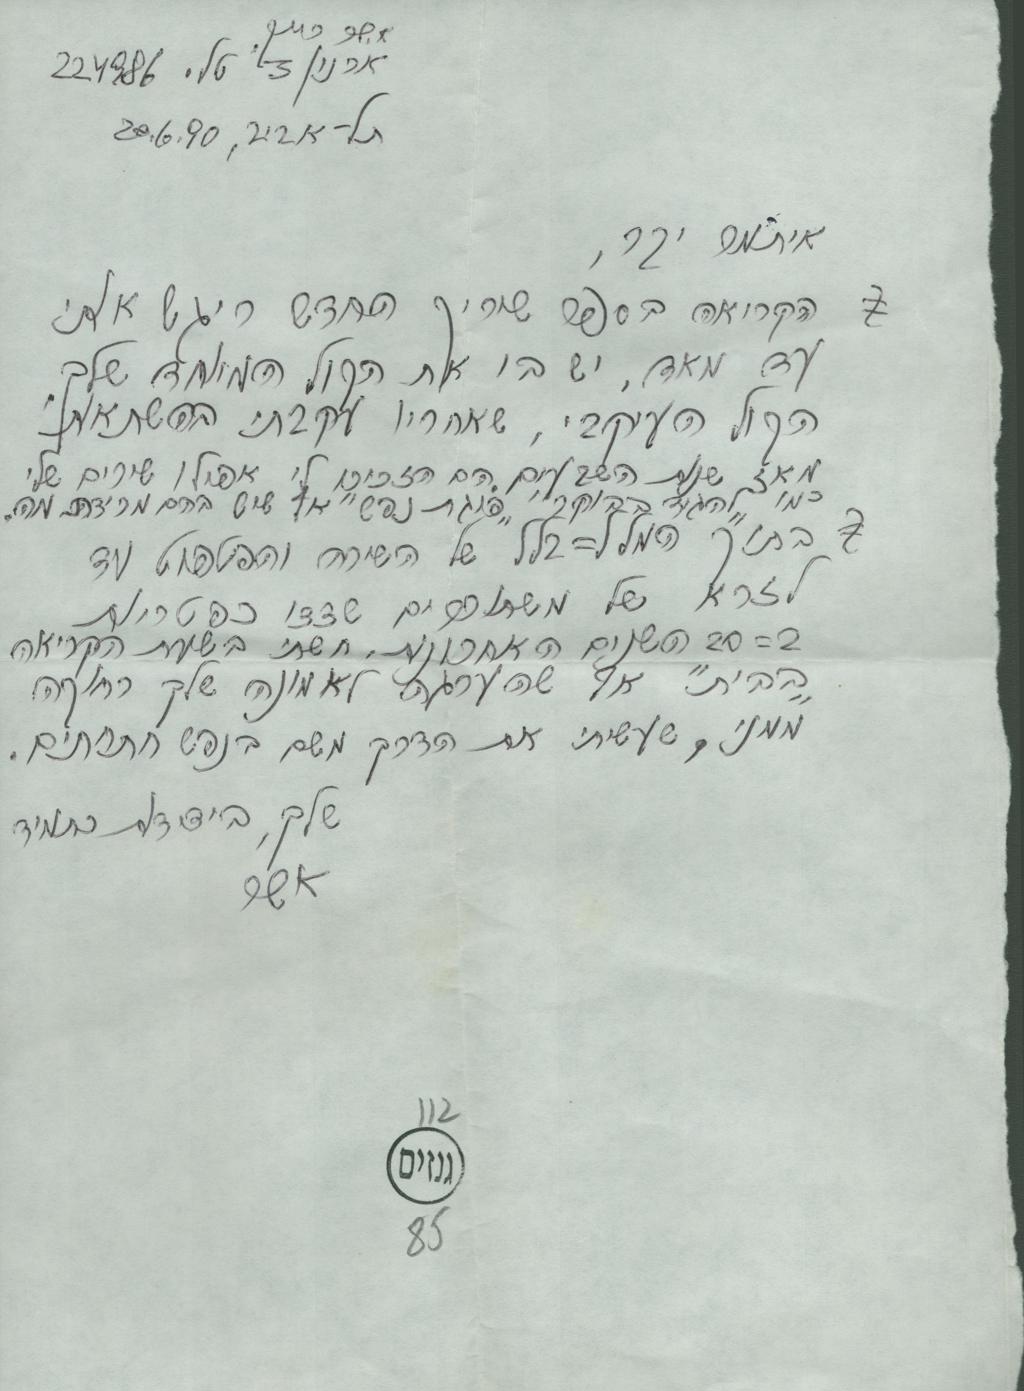 אשר רייך
ארנון 3א' טל. 224986
תל-אביב, 20.6.90
איתמר יקר,
הקריאה בספר שיריך החדש ריגש אותי
עד מאד, יש בו את הקול המיוחד שלך
הקול העיקבי, שאחריו עקבתי בהשתאות
מאז שנות השבעים. הם הזכירו לי אפילו שירים שלי
כמו "להגיד בבוקר" "פוגת נפש" אף שיש בהם מרידת מה.
בתוך המלל=בלל של השירה והפטפוט עד
לזרא של משוררים שצצו כפטריות
ב=20 השנים האחרונות, חשתי בשעת הקריאה
"בבית" אף שהערגה לאמונה שלך רחוקה
ממני, שעשיתי את הדרך משם בנפש חתחתים.
שלך, בידידות כתמיד
אשר
112
גנזים
85